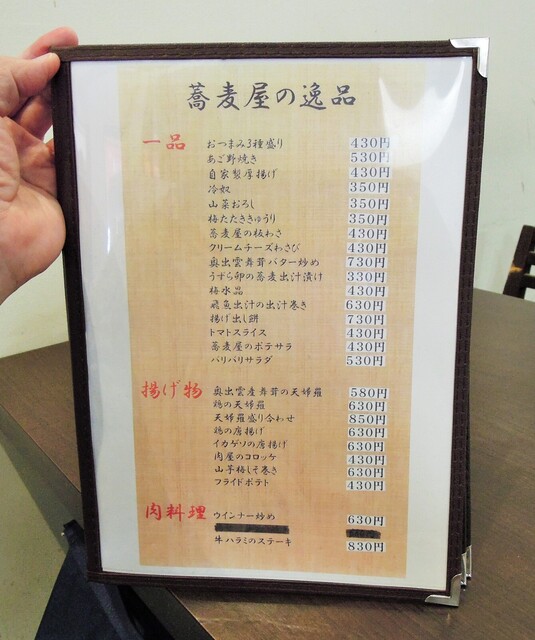 蕎麦屋の逸品
一品 おつまみ3種盛り 430円
あご野焼き 530円
自家製厚揚げ 430円
冷奴 350円
山菜おろし 350円
梅たたききゅうり 350円
蕎麦屋の板わさ 430円
クリームチーズわさび 430円
奥出雲舞茸バター炒め 730円
うずら卵の蕎麦出汁漬け 330円
梅水晶 430円
飛魚出汁の出汁巻き 630円
揚げ出し餅 730円
トマトスライス 430円
蕎麦屋のポテサラ 430円
パリパリサラダ 530円
揚げ物 奥出雲産舞茸の天婦羅 580円
鶏の天婦羅 630円
天婦羅盛り合わせ 850円
鶏の唐揚げ 630円
イカゲソの唐揚げ 630円
肉屋のコロッケ 430円
山芋梅しそ巻き 630円
フライドポテト 430円
肉料理 ウインナー炒め 630円
牛ハラミのステーキ 830円